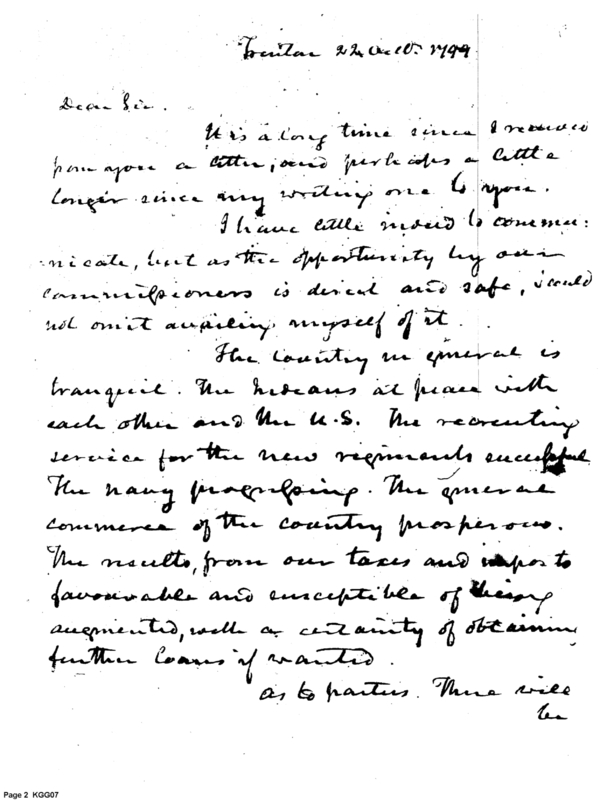 Trenton 22 Octr. 1799
Dear Sir.
It is a long time since I received
from you a letter, and perhaps a little
longer since my writing one to you.
I have little indeed to commu:
nicate, but as the opportunity by our
commissioners is direct and safe, I could
not omit availing myself of it.
The Country in general is
tranquil. The Indians at peace with
each other and the U.S. The recruiting
service for the new regiments successful
The navy progressing. The general
commerce of the country prosperous.
The results, from our taxes and imposts
favourable and susceptible of being
augmented, with a certainty of obtaining
further loans if wanted.
As to parties. There will
be
Page 2 KGG07